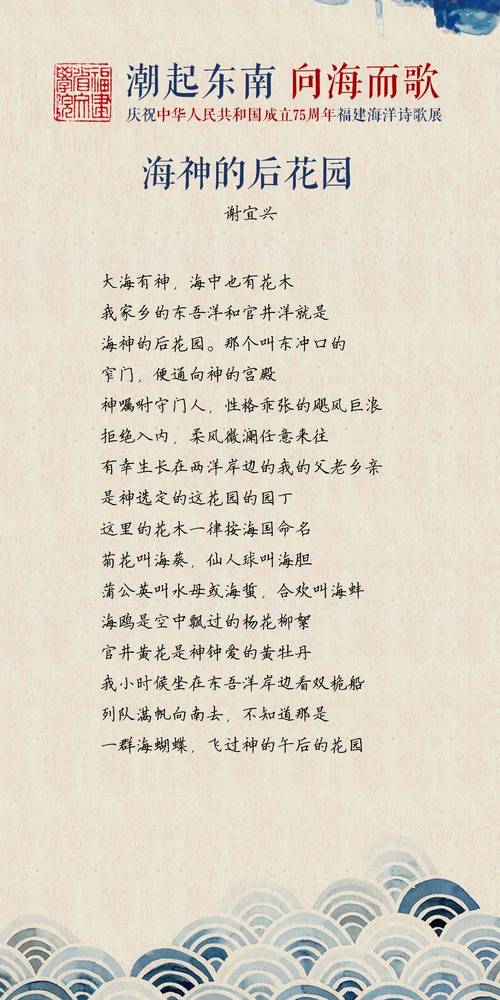 福建省文学院
潮起东南 向海而歌
庆祝中华人民共和国成立75周年福建海洋诗歌展
海神的后花园
谢宜兴
大海有神，海中也有花木
我家乡的东吾洋和官井洋就是
海神的后花园。那个叫东冲口的
窄门，便通向神的宫殿
神嘱咐守门人，性格乖张的飓风巨浪
拒绝入内，柔风微澜任意来往
有幸生长在两洋岸边的我的父老乡亲
是神选定的这花园的园丁
这里的花木一律按海国命名
菊花叫海葵，仙人球叫海胆
蒲公英叫水母或海蜇，合欢叫海蚌
海鸥是空中飘过的杨花柳絮
官井黄花是神钟爱的黄牡丹
我小时候坐在东吾洋岸边看双桅船
列队满帆向南去，不知道那是
一群海蝴蝶，飞过神的午后的花园